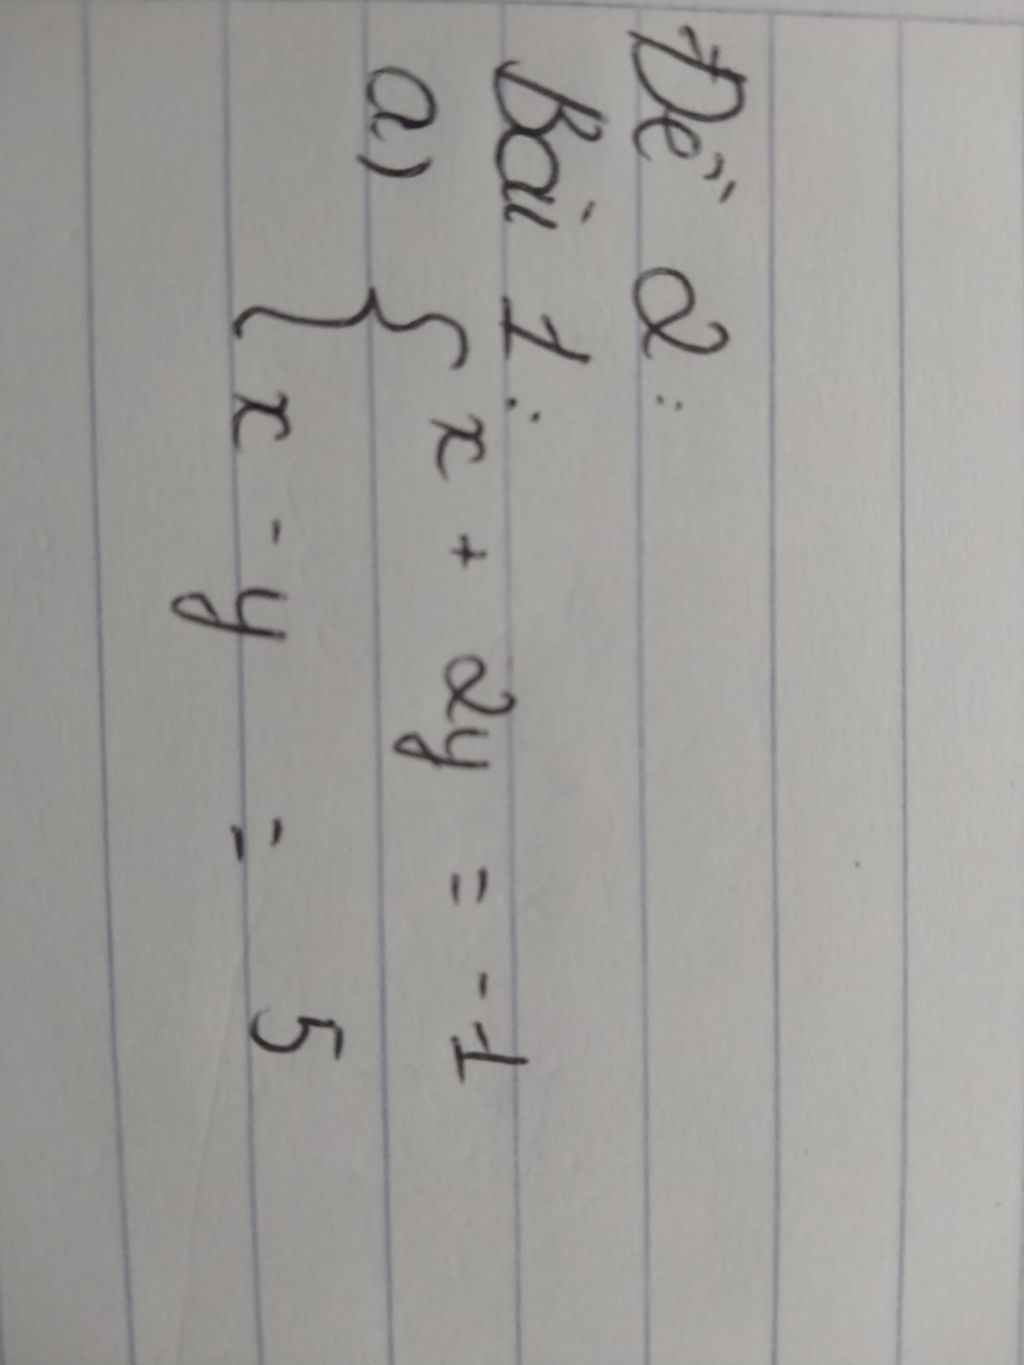 Đề 2:
Bài 1:
a) { x + 2y = -1
x - y = 5